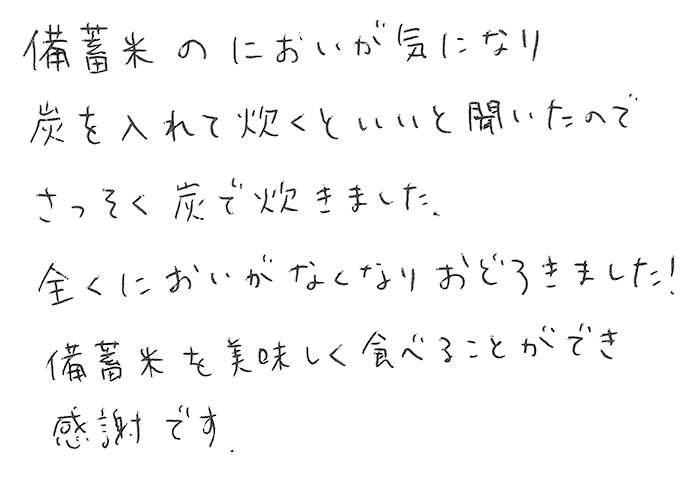 備蓄米のにおいが気になり
炭を入れて炊くといいと聞いたので
さっそく炭で炊きました.
全くにおいがなくなりおどろきました!
備蓄米を美味しく食べることができ
感謝です.